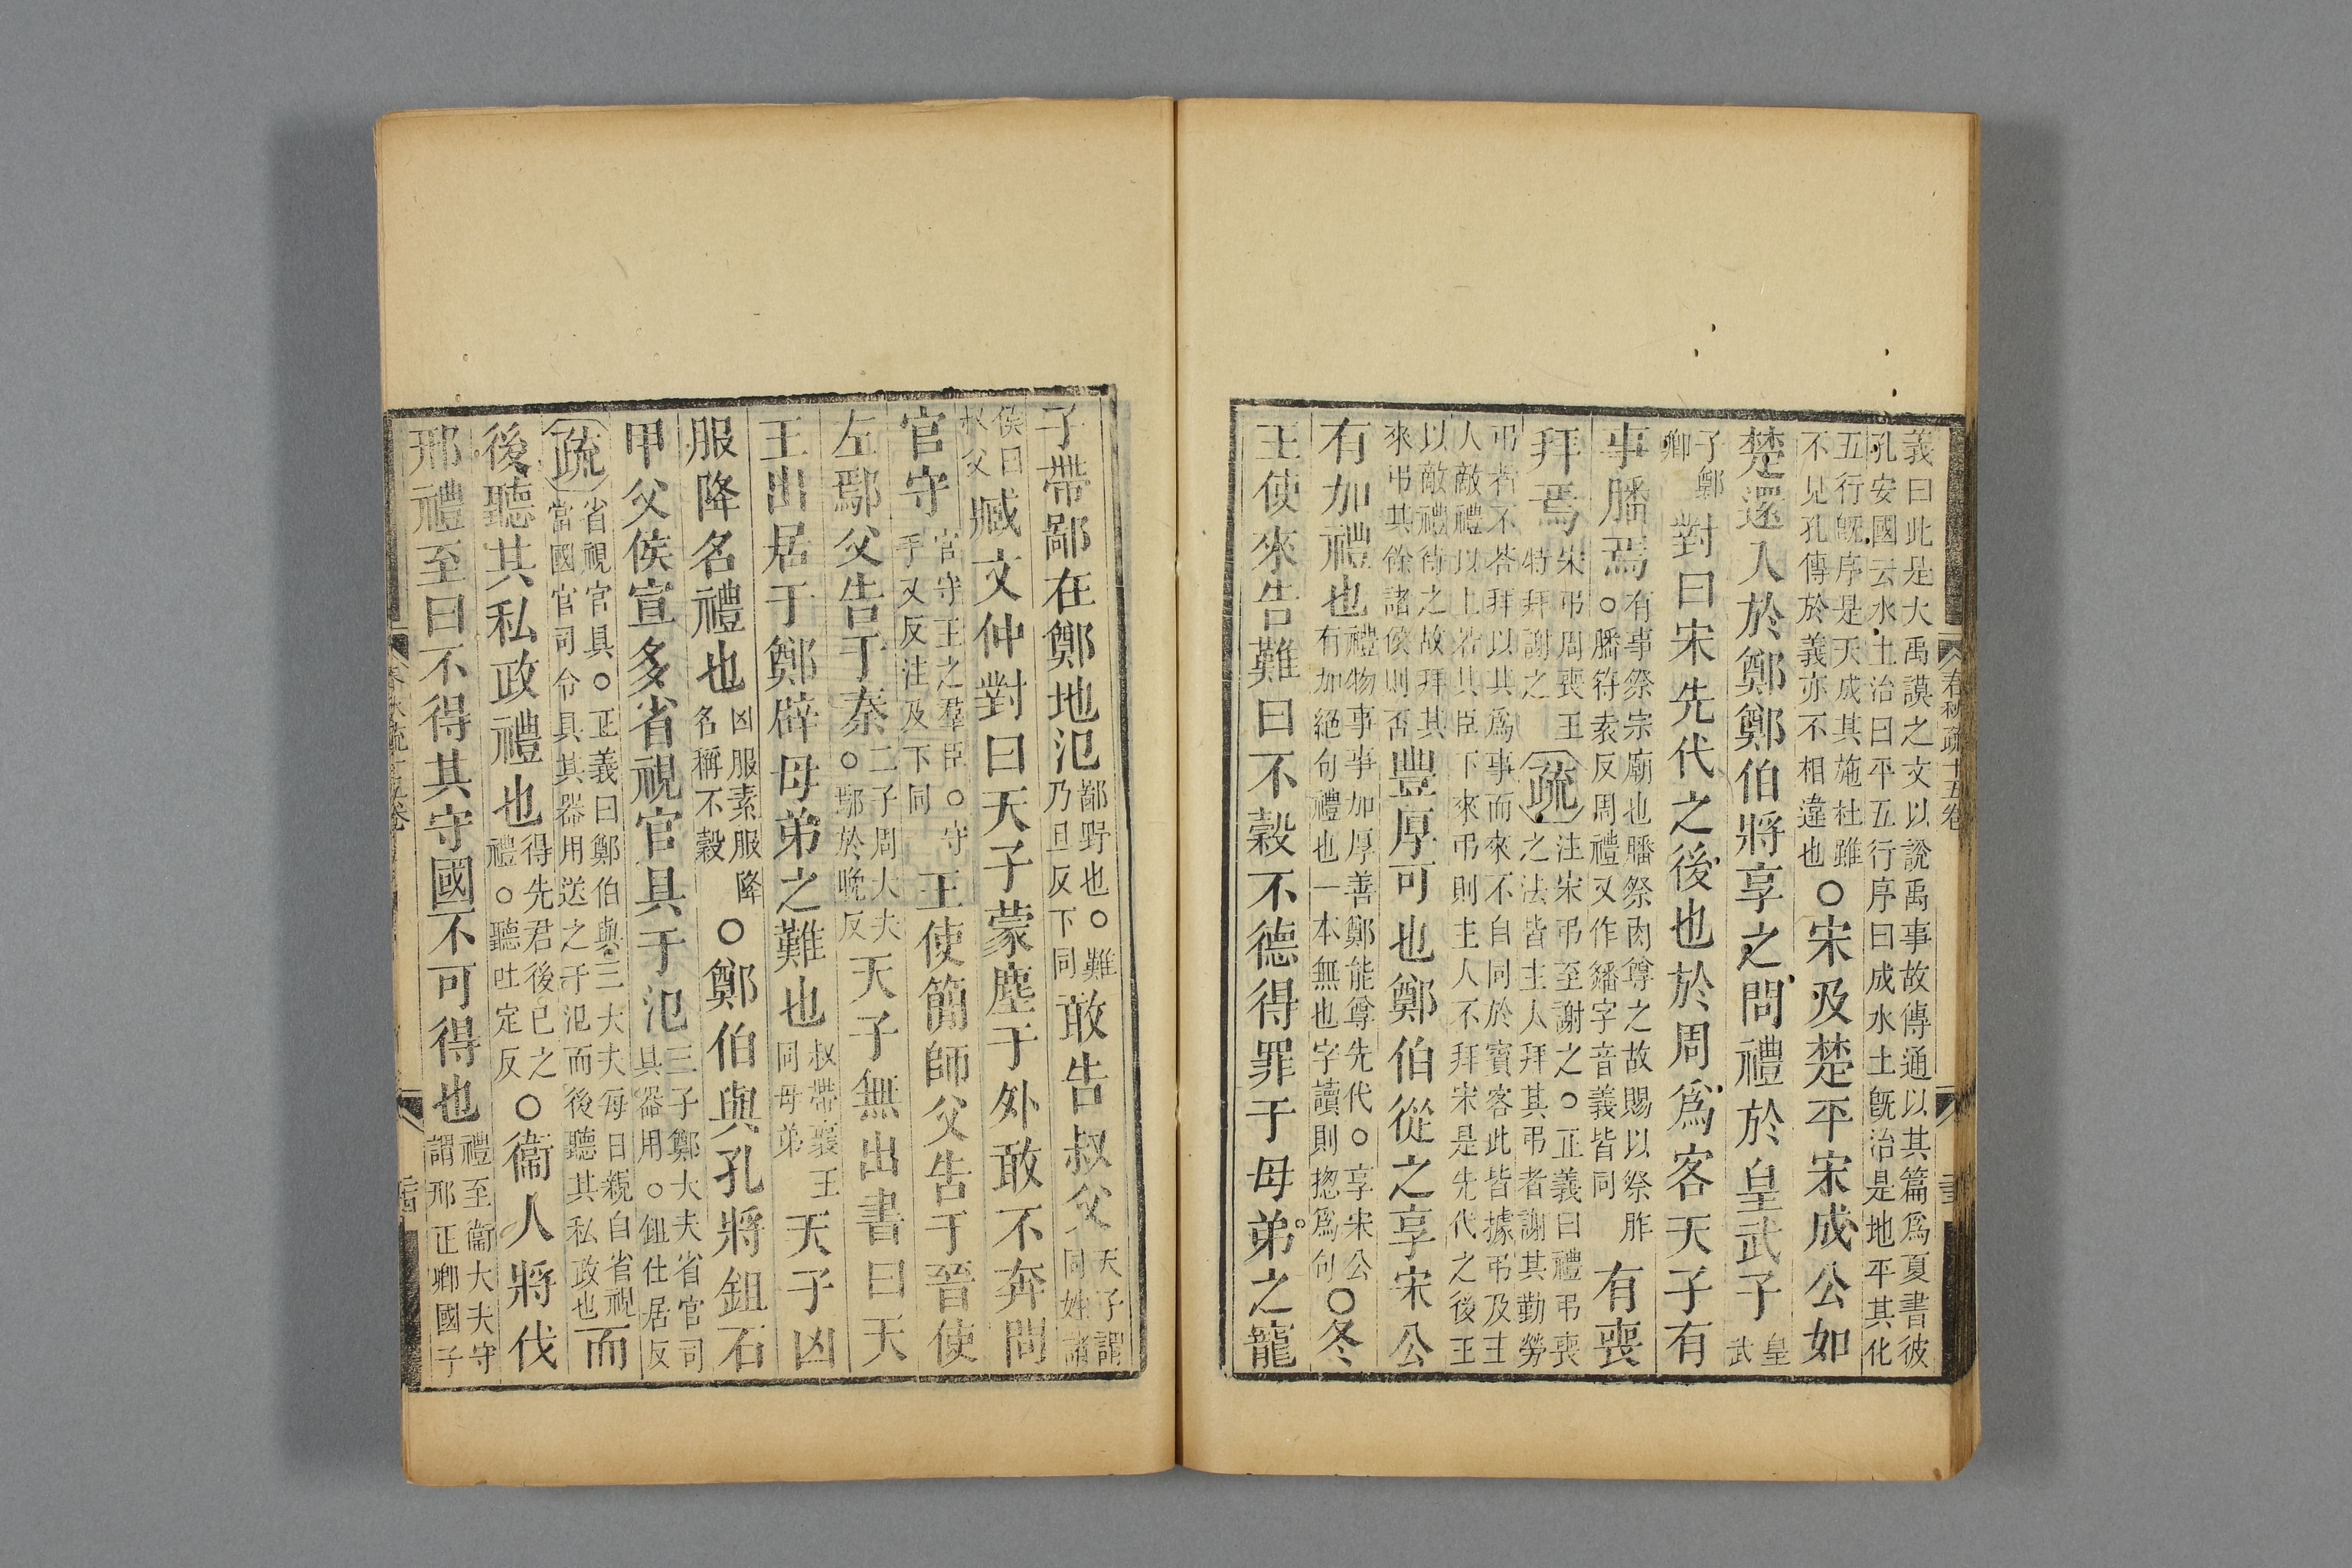 義曰此是大禹謨之文以說禹事故傳通以其篇爲夏書彼
孔安國云水土治曰平五行序曰成水土旣治是地平其化
五行旣序是天成其施杜雖
不見孔傳於義亦不相違也
○宋及楚平宋成公如
楚還入於鄭鄭伯將享之問禮於皇武子
皇武
子鄭卿
對曰宋先代之後也於周爲客天子有
事膰焉
有事祭宗廟也膰祭肉尊之故賜以祭胙
○膰符袁反周禮又作䉒字音義皆同
有喪
拜焉
宋弔周喪王
特拜謝之
疏
注宋弔至謝之○正義曰禮弔喪
之法皆主人拜其弔者謝其勤勞
弔者不荅拜以其爲事而來不自同於賓客此皆據弔及主
人敵禮以上若其臣下來弔則主人不拜宋是先代之後王
以敵禮待之故拜其
來弔其餘諸侯則否
豐厚可也鄭伯從之享宋公
有加禮也
禮物事事加厚善鄭能尊先代○享宋公
有加絕句禮也一本無也字讀則揔爲句
○冬
王使來告難曰不穀不德得罪于母弟之寵
子帶鄙在鄭地氾
鄙野也○難
乃旦反下同
敢告叔父
天子謂
同姓諸
侯曰
叔父
臧文仲對曰天子蒙塵于外敢不奔問
官守
官守王之羣臣○守
手又反注及下同
王使簡師父告于晉使
左鄢父告于秦
二子周大夫
○鄢於晚反
天子無出書曰天
王出居于鄭辟母弟之難也
叔帶襄王
同母弟
天子凶
服降名禮也
凶服素服降
名稱不穀
○鄭伯與孔將鉏石
甲父侯宣多省視官具于氾
三子鄭大夫省官司
具器用○鉏仕居反
疏
省視官具○正義曰鄭伯與三大夫每日親自省視
當國官司令具其器用送之于氾而後聽其私政也
而
後聽其私政禮也
得先君後已之
禮○聽吐定反
○衞人將伐
邢禮至曰不得其守國不可得也
禮至衞大夫守
謂邢正卿國子
春秋疏十五卷